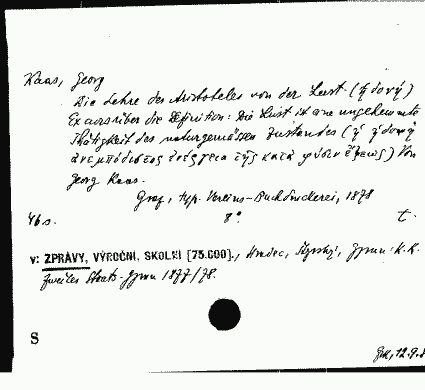 Kaas, Georg
Die Lehre des Aristoteles von der Lust (ἡδονή)
Excurs über die Definition: Die Lust ist eine ungehemmte
Thätigkeit des naturgemässen Zustandes (ἡ ἡδονὴ
ἀνεμπόδιστος ἐνέργεια τῆς κατὰ φύσιν ἕξεως) Von
Georg Kaas.
Graz, typ. Vereins-Buchdruckerei, 1878
46 s. 8° t.
v: ZPRÁVY, VÝROČNÍ, ŠKOLNÍ [75.600]., Hradec, Štyrský, Gymn. K.K.
zweites Staats-Gymn 1877/78.
S
12.9.